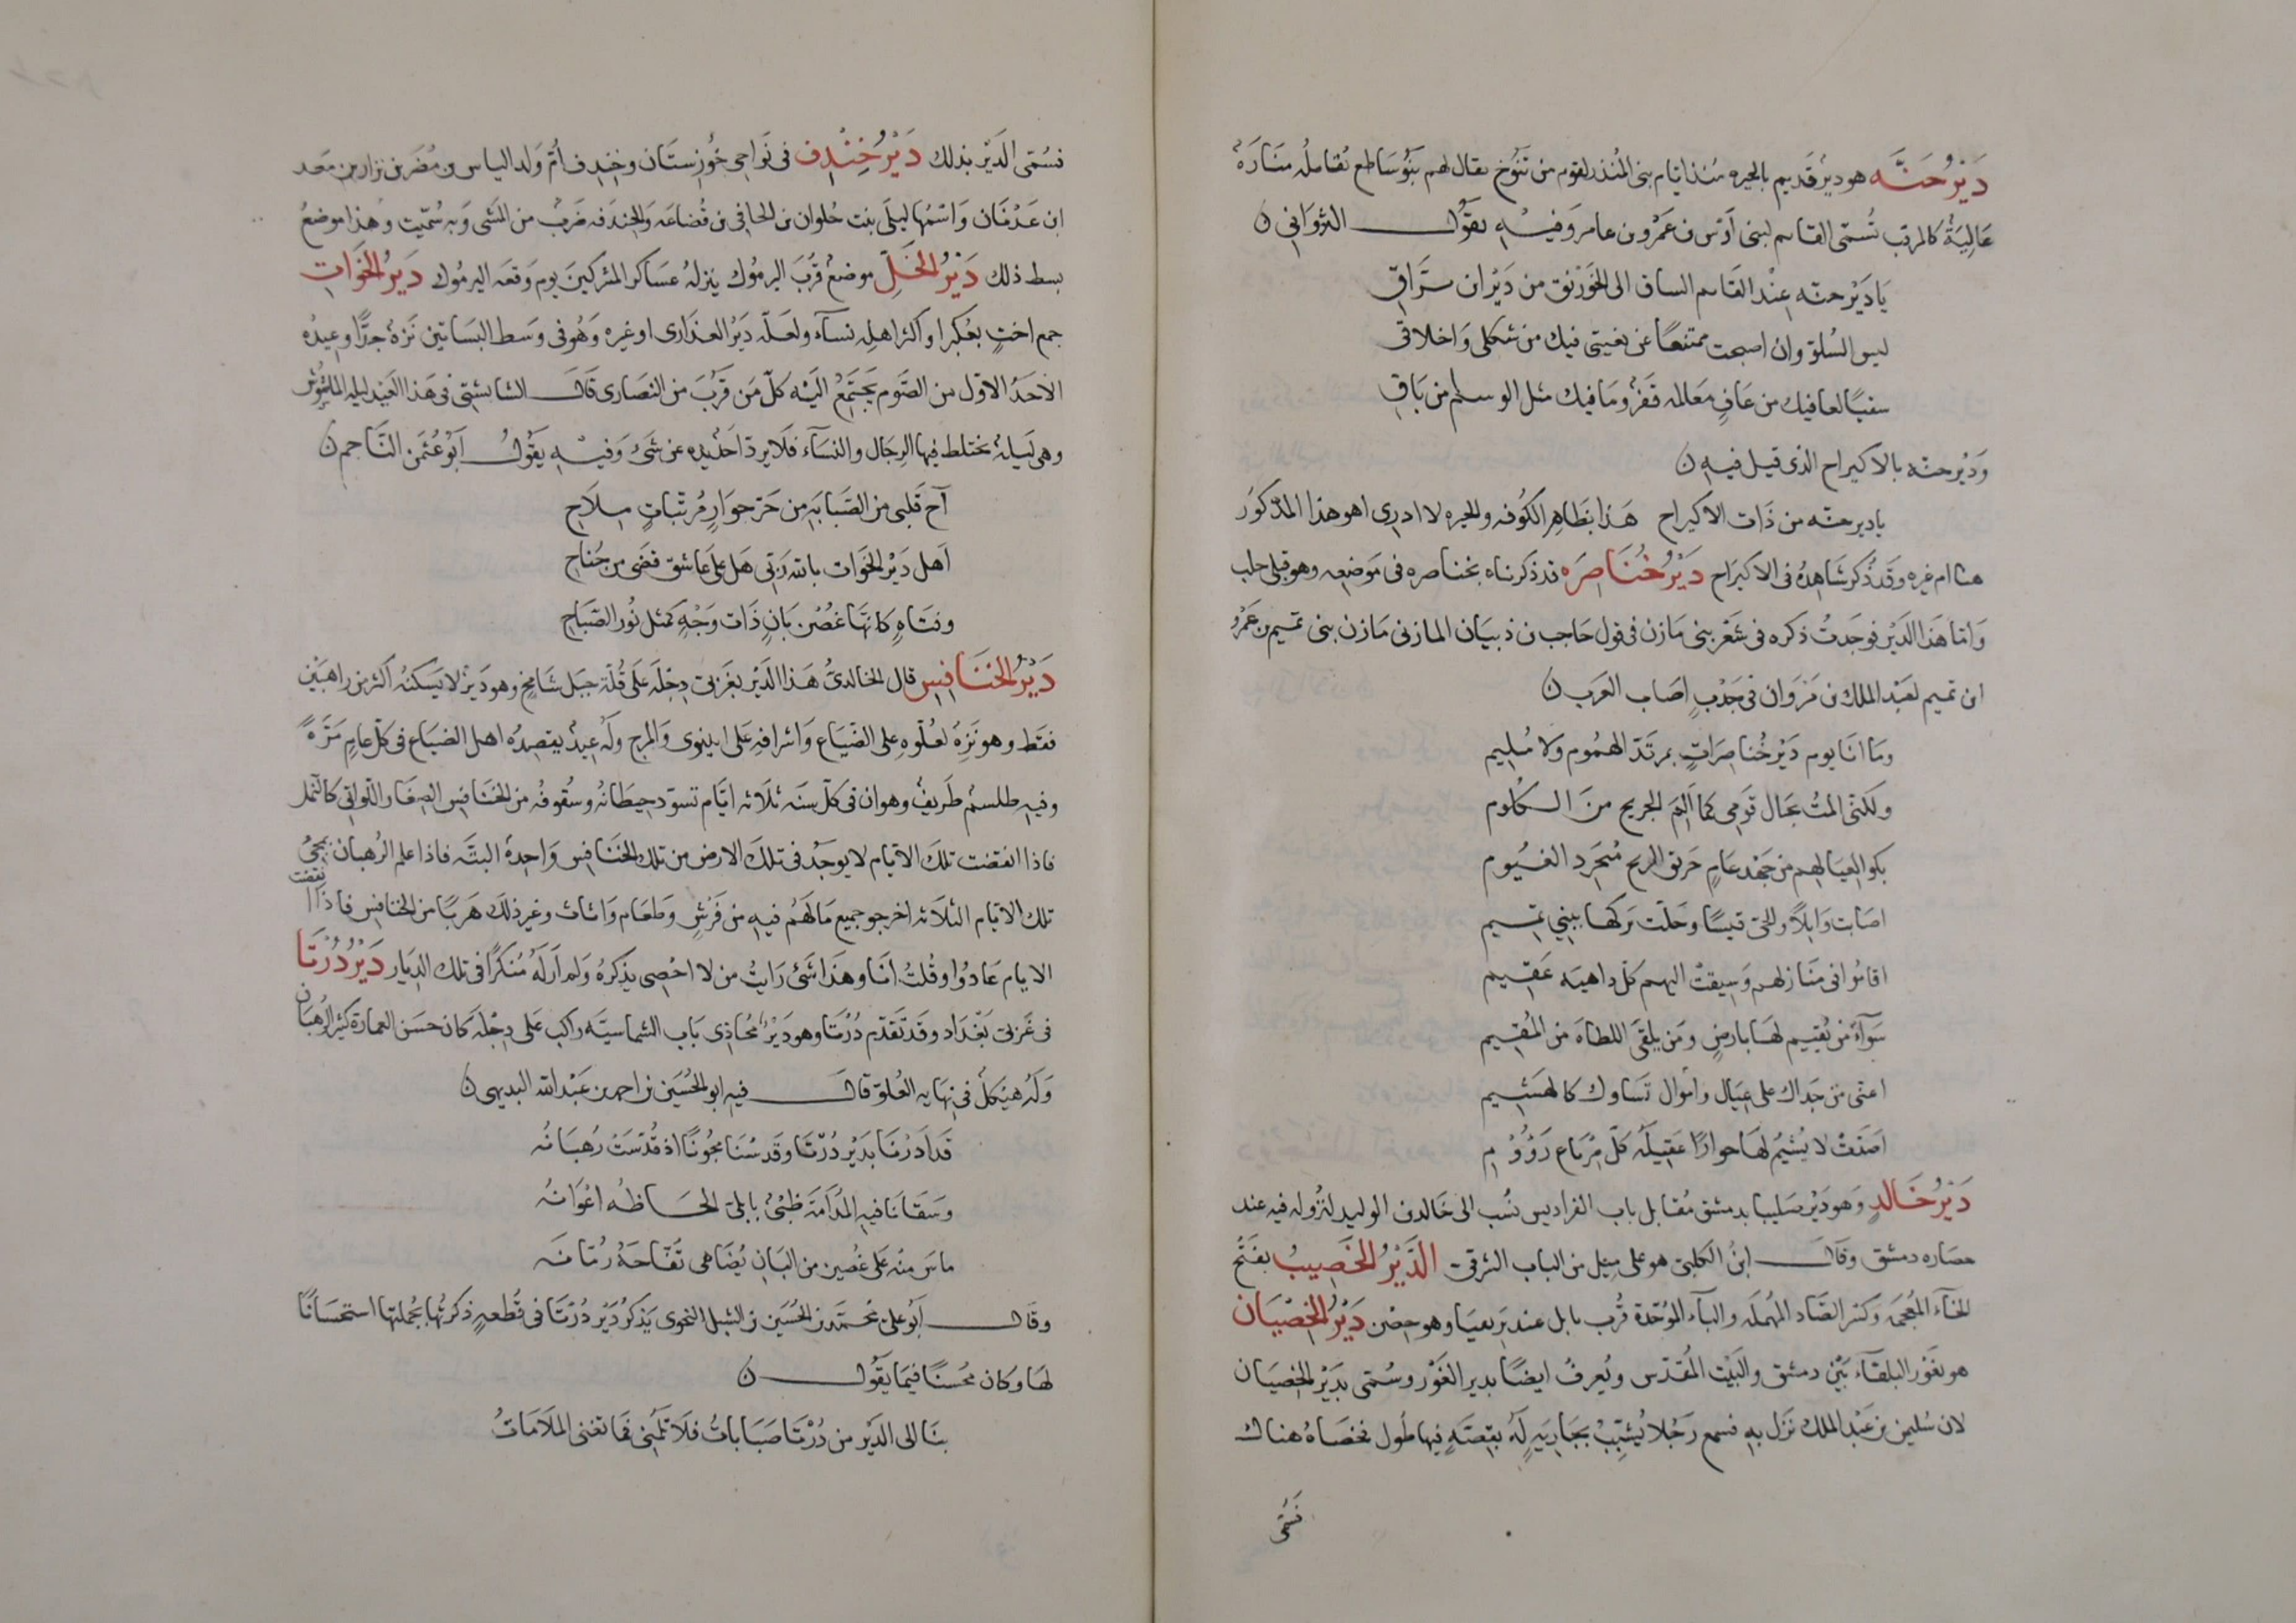 دَيْرُ حَنَّه هو ديرٌ قديم بالحيره منذ ايام بنى المُنذر لقوم من تَنُوخ يقال لهم بَنُو سَاطع تُقابلُه منَارَةٌ
عَالِيَةٌ كالمرقب تُسمّى القايم لبنى أَوْس بن عَمْرو بن عامر وَفيــهِ يقَوُل الثروَانى ن
يَا دَيْر حنّه عِنْد القَايم الساق الى الخَوَرْنق من دَيْر ان برّاقِ
ليس السُلوّ وان اصبحت ممتنعًا عن بغيتى فيك من شكلى وَاخلاقى
سقيًا لعافيك من عَافٍ مَعَالمه قَفرٌ وَمَا فيك مثل الوسلم من بَاقِ
وَدَيْر حنّه بالاكيراح الذى قيل فيه ن
يا دير حنّه من ذَات الاكيراح هَذا بظَاهِر الكُوفه والحيره لا ادرى اهو هذا المذكوُر
هنا ام غيره وقَد ذُكر شَاهِدُه فى الاكيرَاح دَيْرُ خُنَاصِرَه قد ذكرناه بخناصره فى مَوضِعه وهو قبلى حلب
وَامّا هَذَا الدَيْر فوجَدتُ ذكره فى شعْر بنى مَازن فى قول حَاجب بن ذبيَان المازنى مَازن بنى تميم بن عَمْرو
ابن تميم لعَبْد الملك بن مَروَان فى جَدْبٍ اصَاب العَرب ن
وَمَا انَا يوم دَيْر خُناصِرَاتٍ بمرتَدّ الهمُوم ولا مُليم
ولكنى المْتُ بحَال قَومِى كما اَلِمَ الجريح منَ الكلوم
بكوا لعيَالهم من جهْد عَامٍ خريق الريح مُنجَرد الغيُوم
اصَابت وَايلاً والحىّ قيسًا وحَلّت بَركهَا ببنى تميم
اقَاموُا فى مَنَازلهم وَسِيقتْ اليهم كلّ داهيَه عَقيم
سَوَآءٌ من يُقيم لهَا بارضٍ ومَن يلقَى اللطاهَ من المُقيم
اعنّى من جَداك على عيَال وامْوال تَسَاوك كالهَشيم
اصَدّتْ لا يُشيْمُ لهَا حوارًا عَقيلَهُ كلّ مِرْباع رَؤُوْمِ
دَيْرُ خَالدٍ وَهو دَيْر صَليبا بدمشق مُقابل باب الفراديس نُسب الى خَالد بن الوليد لنزُوله فيه عند
حصَاره دمشق وَقَال ابْنُ الكلبىّ هو على ميل من الباب الشرقى الدَّيْرُ الخَصِيبُ بفَتْح
الخاء المُعْجَمة وَكسر الصَاد المهملَه والبآء الموُحّدة قُرب بابل عند بَزيقيَا وهو حِصْن دَيْرُ الخِصْيَانِ
هو بغَوْر البلقآء بَيْن دمشق والبَيْت المُقدّس ويُعرفُ ايضًا بدير الغَوْر وسُمّى بدَيْر الخِصيَان
لان سُليمٰن بن عَبْد الملك نَزل به فسمع رَجُلا يُشَبِّبُ بجَاريَةٍ لَهُ بقِصَّةٍ فيها طُول فخصَاهُ هناك
فَسُمّى
فسُمّى الدَيْر بذلك دَيْرُ خِنْدِف فى نَوَاحى خُوزستَان وخِنْدف اُمّ وَلد الياس بن مُضَر بن نزار بن معد
ابن عَدْنَان وَاسْمُها ليلَى بنت حُلوان بن الحافى بن قُضاعَه وَالخندَفه ضَربٌ من المَشى وَبه سُمّيت وهذا موضعُ
بسط ذلك دَيْرُ الخَلِّ موضعٌ قرُبَ اليرمُوك ينزلهُ عسَاكر المشركينَ يوم وَقعَه اليرموُك دَيرُ الخَوَاتِ
جمع اختٍ بعُكبرا واكثر اهله نسآء ولعَلّه دَيْر العذارى او غيره وَهُو فى وَسط البسَاتين نَزهٌ جدًّا وعيدُه
الاحَدُ الاوّل من الصَّوم يَجتَمِعُ الَيْه كلّ مَن قَرُبَ من النصَارى قَالَ الشابشتى فى هَذا العيْد ليله الماشوش
وهى لَيلهٌ يختلط فيها الرِجَال والنسَآء فلَا يردّ اَحَدٌ يده عن شئ وَفيــهِ يَقوُلُ اَبُوْ عُثمَن النَّاجم ن
آح قَلبى من الصَبَابَةِ من حَرّ جوَارٍ مُرنّباتٍ مِلَاح
اَهل دَيْر الخَوَات بالله رَبّى هَل عَلى عَاشق قضَى من جُناح
وفتَاهٍ كانهَّا غصْن بَانٍ ذَات وَجْهٍ كمثل نُور الصَبَاح
دَيْرُ الخَنَافِس قال الخالدىُّ هَذا الدَيْر بغَربى دِجْلَه عَلَى قُلّه جبَل شَامِخٍ وهو دَيرٌ لا يَسكنهُ اكثر من راهبَيْن
فقَط وهو نَزِهٌ لعُلّوه على الضيَاع وَاشرافهِ عَلى انينوى وَالمرج ولَهُ عيدٌ يقصدُه اهل الضيَاع فى كلّ عامٍ مَرَّةً
وفيه طلسمٌ طَريفٌ وهو ان فى كلّ سنَه ثلَاثه ايَّام تسوّد حيطَانُه وسُقوفُه من الخنَافِس الصِغَار اللّواتى كالنّمل
فاذا انقضت تلكَ الايام لا يوجَدُ فى تلكَ الارض من تلك الخنَافِس وَاحِدةٌ البتّه فاذا علم الرُهبان بمجئ
تلك الايَام الثلَاثه اخرجو جميع مَا لهَم فيه من فَرْش وَطعَام وَاثَاث وغير ذلكَ هَربًا من الخنَافِس فاذا انقضت
الايام عَادُوا وقُلتُ انَا وهذَا شَئ رَايتُ من لا احْصِى يذكرهُ وَلم اَرَ لَهُ مُنكرًا فى تلك الدِيار دَيْرُ دُرْتَا
فى غَربىّ بَغْدَاد وقَد تَقدّم دُرْتَا وهو دَيْرٌ مُحَاذى بَاب الشماسيّه راكب عَلى دِجْلَه كان حسَن العمارة كثير الرهْبَان
وَلَهُ هَيْكلٌ فى نهَايه العُلوّ قَالَ فيه ابو الحُسَين بن احمد بن عَبْد الله البديهى ن
قَد اَدَرْنَا بدَيْر دُرْتَا وقَد سُنَا مجُونًا اذ قُدّسَتْ رُهبَانُه
وَسَقَانَا فيه المُدَامَة ظبْىٌ بابلىّ الحَاظُه اعْوَانُه
ماسَ منه عَلى غُصين من البَانِ يُضَاهى تُفّاحَهُ رُمّانَه
وقَالَ اَبُو علىّ مُحمّد بن الحُسَين بن الشبل النحوى يَذكرُ دَيْر دُرْتَا فى قُطعهٍ ذكرتُها بجُملتها استحسَانًا
لهَا وكان مُحسنًا فيما يَقوُل ن
بنَا الى الدَيْر من دُرْتَا صَبَاباتُ فلَا تَلُمْنى فَما تغنى المَلَامَاتُ